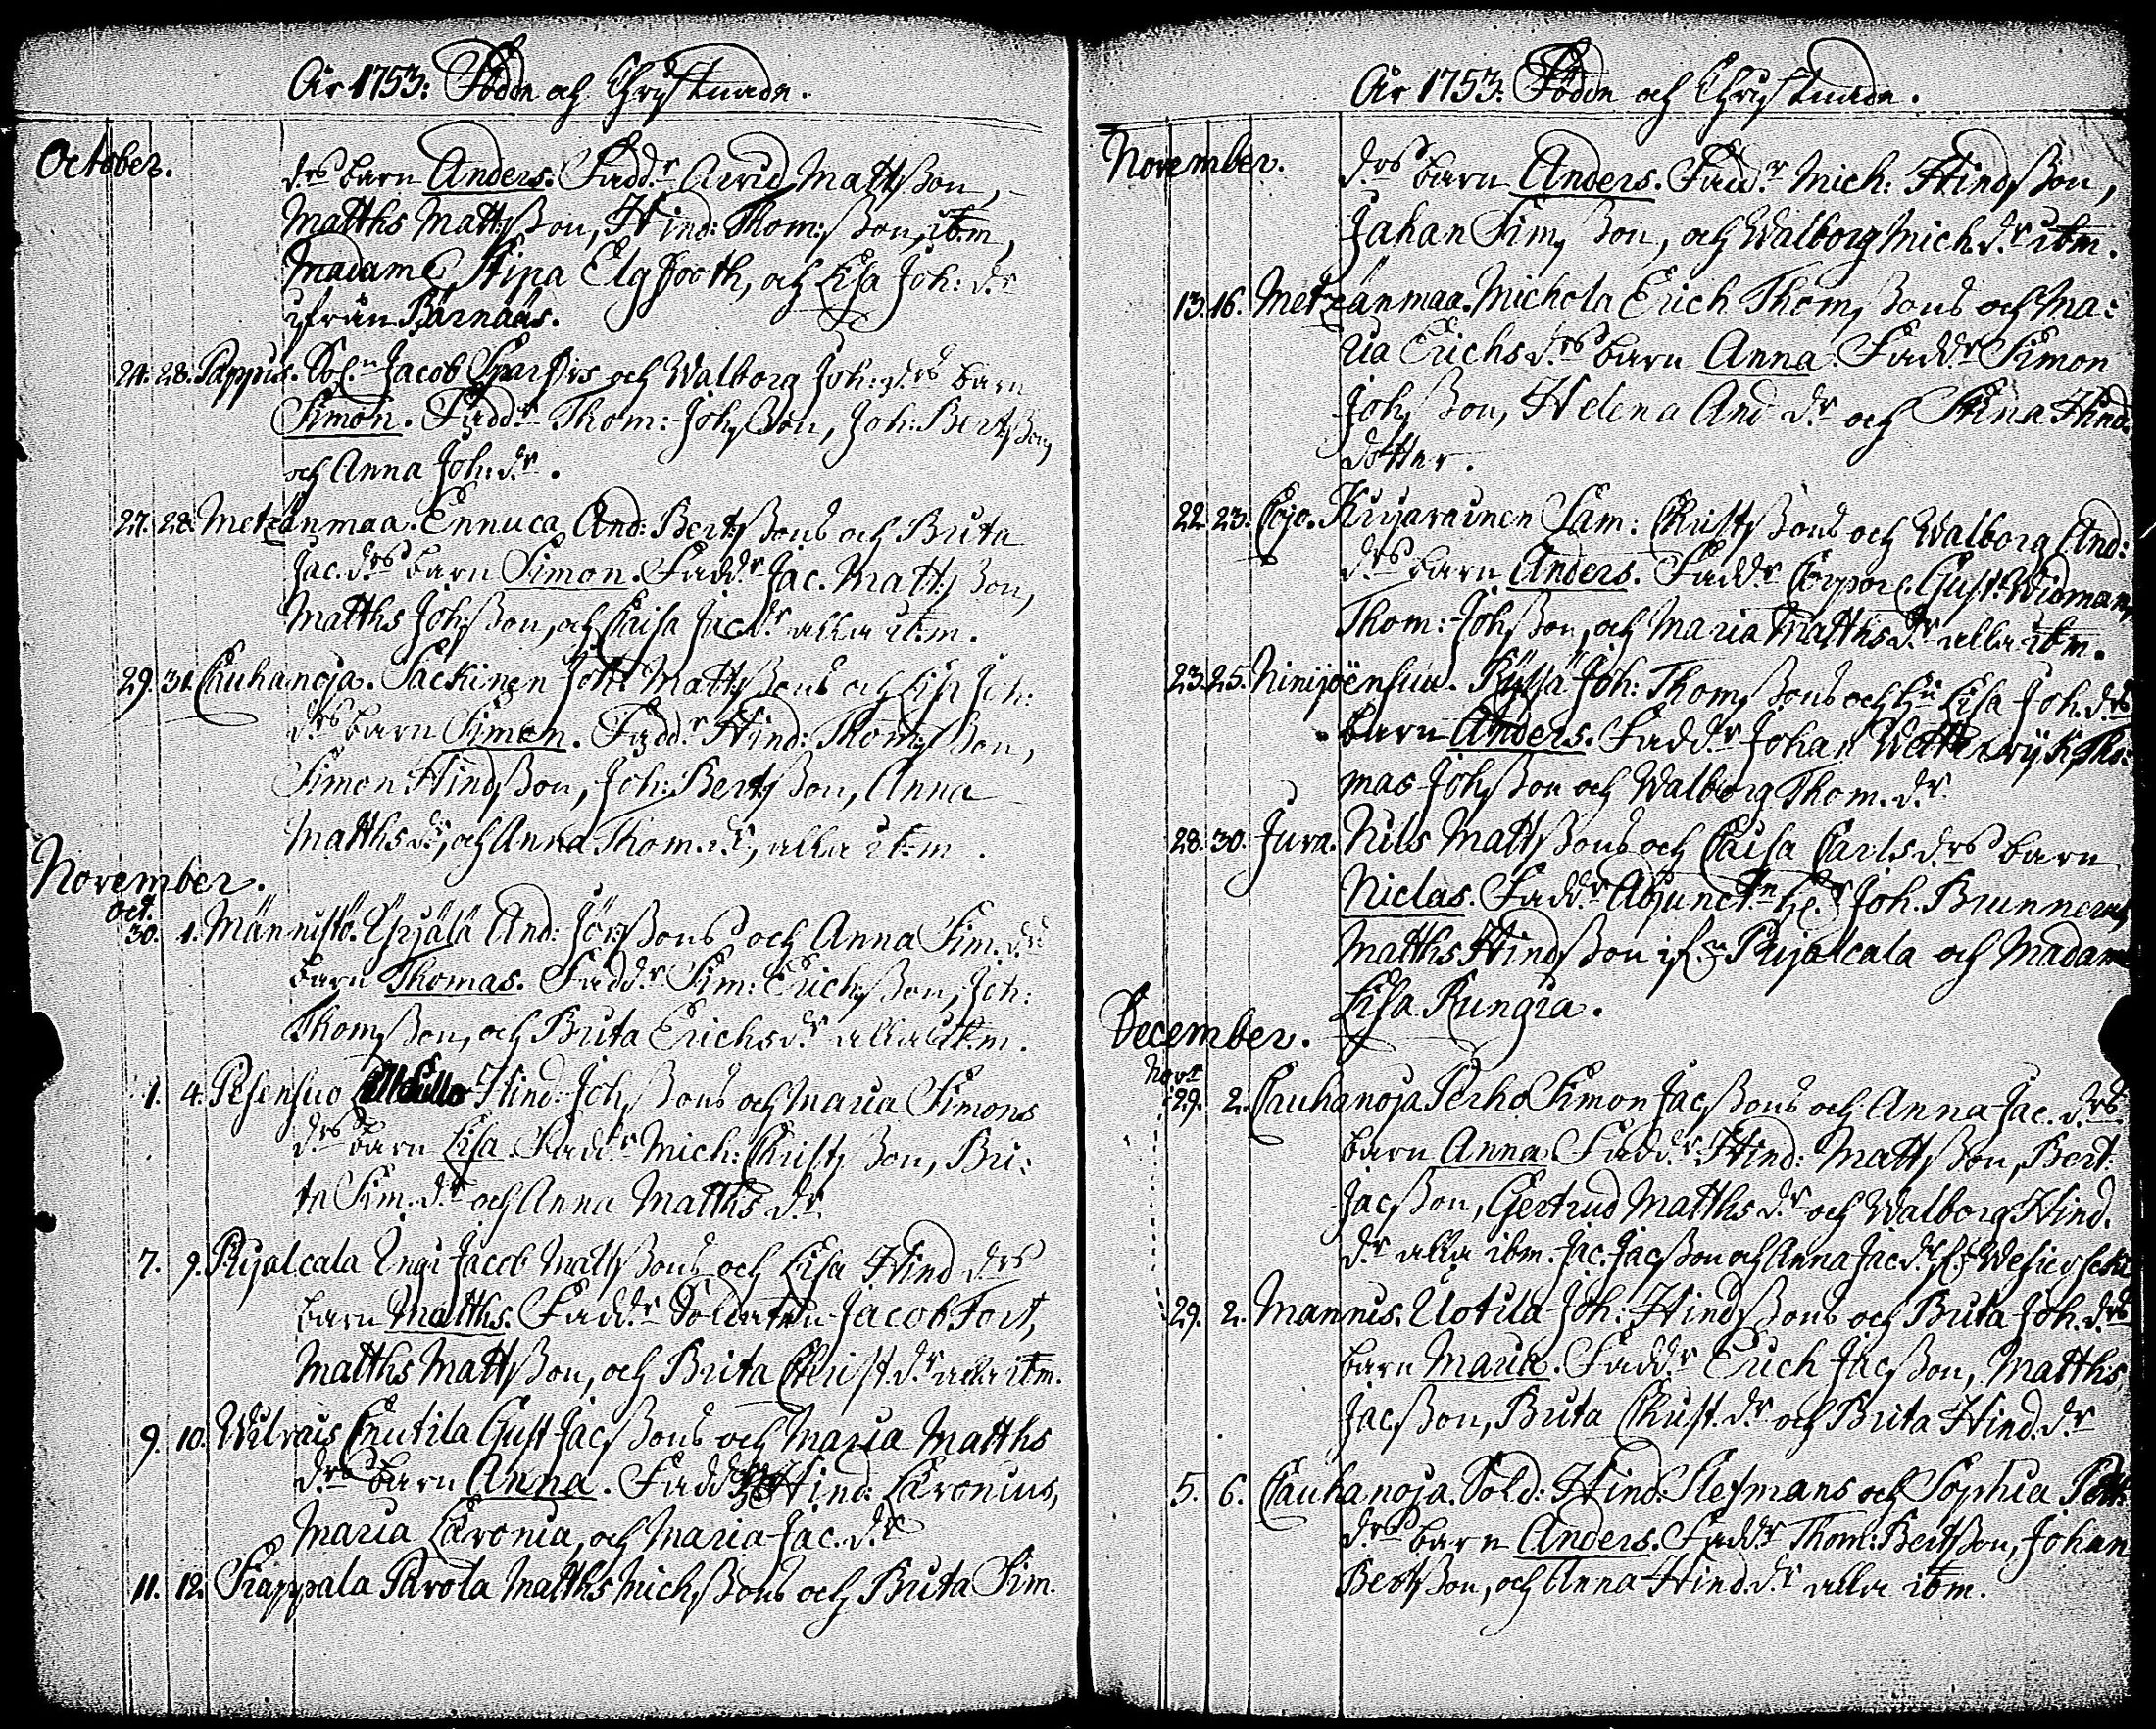 År 1753: Födde och Christnade.
October.
drs barn Anders. Faddr Arvid Mattsson,
Matths Mattsson, Hind: Thom:sson, ibm,
Madame Stina Elgfooth, och Lisa Joh: dr
ifrån Bärnäås.
24. 28. Pappus. Sol:n Jacob och Walborg Joh: drs barn
Simon. Faddr Thom: Johsson, Joh: Bertsson,
och Anna Joh: dr.
27. 28. Metzänmaa. Ennuca And: Bertssons och Brita
Jac. drs barn Simon. Faddr Jac. Mattsson,
Matths Johsson, och Caisa Jac dr alla ibm.
29. 31. Cauhanoja. Sackinen Joh: Mattssons och Lisa Joh:
drs barn Simon. Faddr Hind: Thomsson,
Simon Hindsson, Joh: Bertsson, Anna
Matths dr, och Anna Thom. dr, alla ibm.
November.
Oct.
30. 1. Männistö. Yrjälä And: Jörssons och Anna Sim. drs
barn Thomas. Faddr Sim: Erichsson, Joh:
Thomsson, och Brita Erichs dr alla ibm.
1. 4. Pesensuo Hind: Johssons och Maria Simons
drs barn Lisa. Faddr Mich: Christsson, Bri:
ta Sim. dr och Anna Matths dr.
7. 9. Pyjalcala Jacob Mattssons och Lisa Hind drs
barn Matths. Faddr Soldaten Jacob Fort,
Matths Mattsson, och Brita Christ. dr alla ibm.
9. 10. Wilvais Cnutila Gust Jacssons och Maria Matths
drs barn Anna. Faddr Hind: Caronius,
Maria Caronia, och Maria Jac. dr
11. 12. Parola Matths Michssons och Brita Sim.
År 1753: Födde och Christnade.
November.
drs barn Anders. Faddr Mich: Hindsson,
Johan Simsson, och Walborg Mich. dr ibm.
13. 16. Metzänmaa. Michola Erich Thomssons och Ma:
ria Erichs drs barn Anna. Faddr Simon
Johsson, Helena And dr och Stina Hind.
dotter.
22. 23. Cojo. Kujarainen Sam: Christssons och Walborg And:
drs barn Anders. Faddr Corporl. Gust: Widman,
Thom: Johsson, och Maria Matths dr alla ibm.
23. 25. Ninijoensuu. Joh: Thomssons och Lisa Joh. drs
barn Anders. Faddr Johan Wetterwijk, Tho:
mas Johsson och Walborg Thom. dr.
28. 30. Jura. Nils Mattssons och Caisa Carls drs barn
Niclas. Faddr Adjuncten Joh. Brunnerus,
Matths Hindsson Pyjalcala och Madame
Lisa Rungia.
December.
Novr
29. 2. Cauhanoja Perho Simon Jacssons och Anna Jac. drs
barn Anna. Faddr Hind: Mattsson, Bert:
Jacsson, Gertrud Matths dr och Walborg Hind.
dr alla ibm. Jac. Jacsson och Anna Jac. dr
29. 2. Mannis. Uotila Joh: Hindssons och Brita Joh. drs
barn Maria. Faddr Erich Jacsson, Matths
Jacsson, Brita Christ. dr och Brita Hind. dr
5. 6. Cauhanoja. Sold: Hind: Slefmans och Sophia
drs barn Anders. Faddr Thom: Bertsson, Johan
Bertsson, och Anna Hind. dr alla ibm.